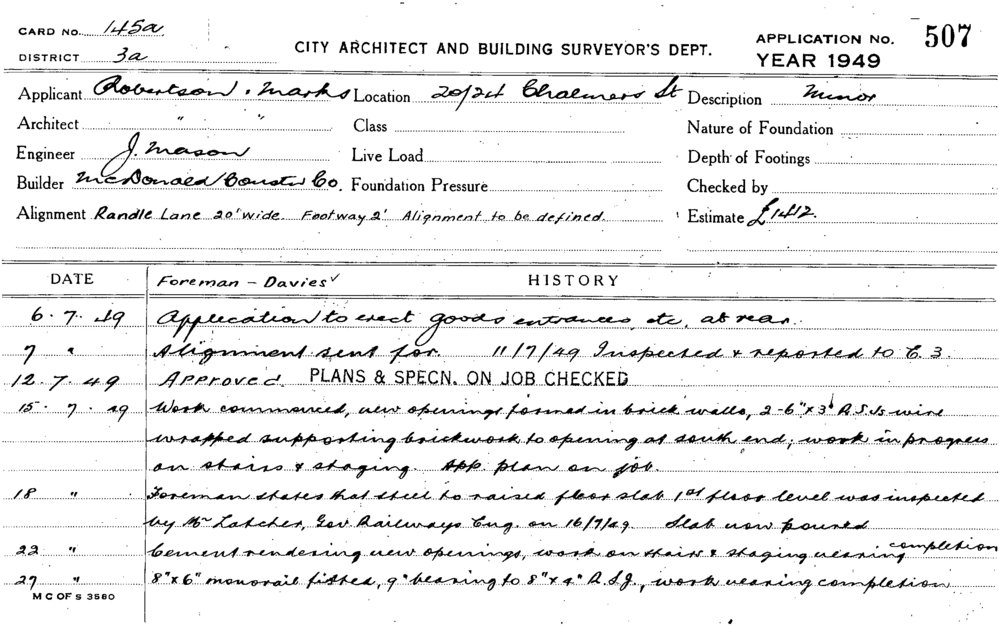 CARD No. 145a
CITY ARCHITECT AND BUILDING SURVEYOR'S DEPT.
APPLICATION No. 507
DISTRICT 3a
YEAR 1949
Applicant Robertson & Marks Location 20/24 Chalmers St Description Minor
Architect " " Class Nature of Foundation
Engineer J. Mason Live Load Depth of Footings
Builder McDonald Constn Co. Foundation Pressure Checked by
Alignment Randle Lane 20' wide. Footway 2' Alignment to be defined. Estimate £1412.
DATE Foreman - Davies HISTORY
6.7.49 Application to erect goods entrances etc. at rear.
7 " Alignment sent for. 11/7/49 Inspected & reported to C. 3.
12.7.49 Approved. PLANS & SPECN. ON JOB CHECKED
15.7.49 Work commenced, new openings formed in brick walls, 2-6" x 3" R.S.Js wire
wrapped supporting brickwork to opening at south end; work in progress
on stairs & staging. App. plan on job.
18 " Foreman states that steel to raised floor slab 1st floor level was inspected
by Mr Latcher, Gov Railways Eng. on 16/7/49. Slab now poured
22 " Cement rendering new openings, work on stairs & staging nearing completion
27 " 8" x 6" monorail fitted, 9" bearing to 8" x 4" R.S.J., work nearing completion
M C OF S 3580